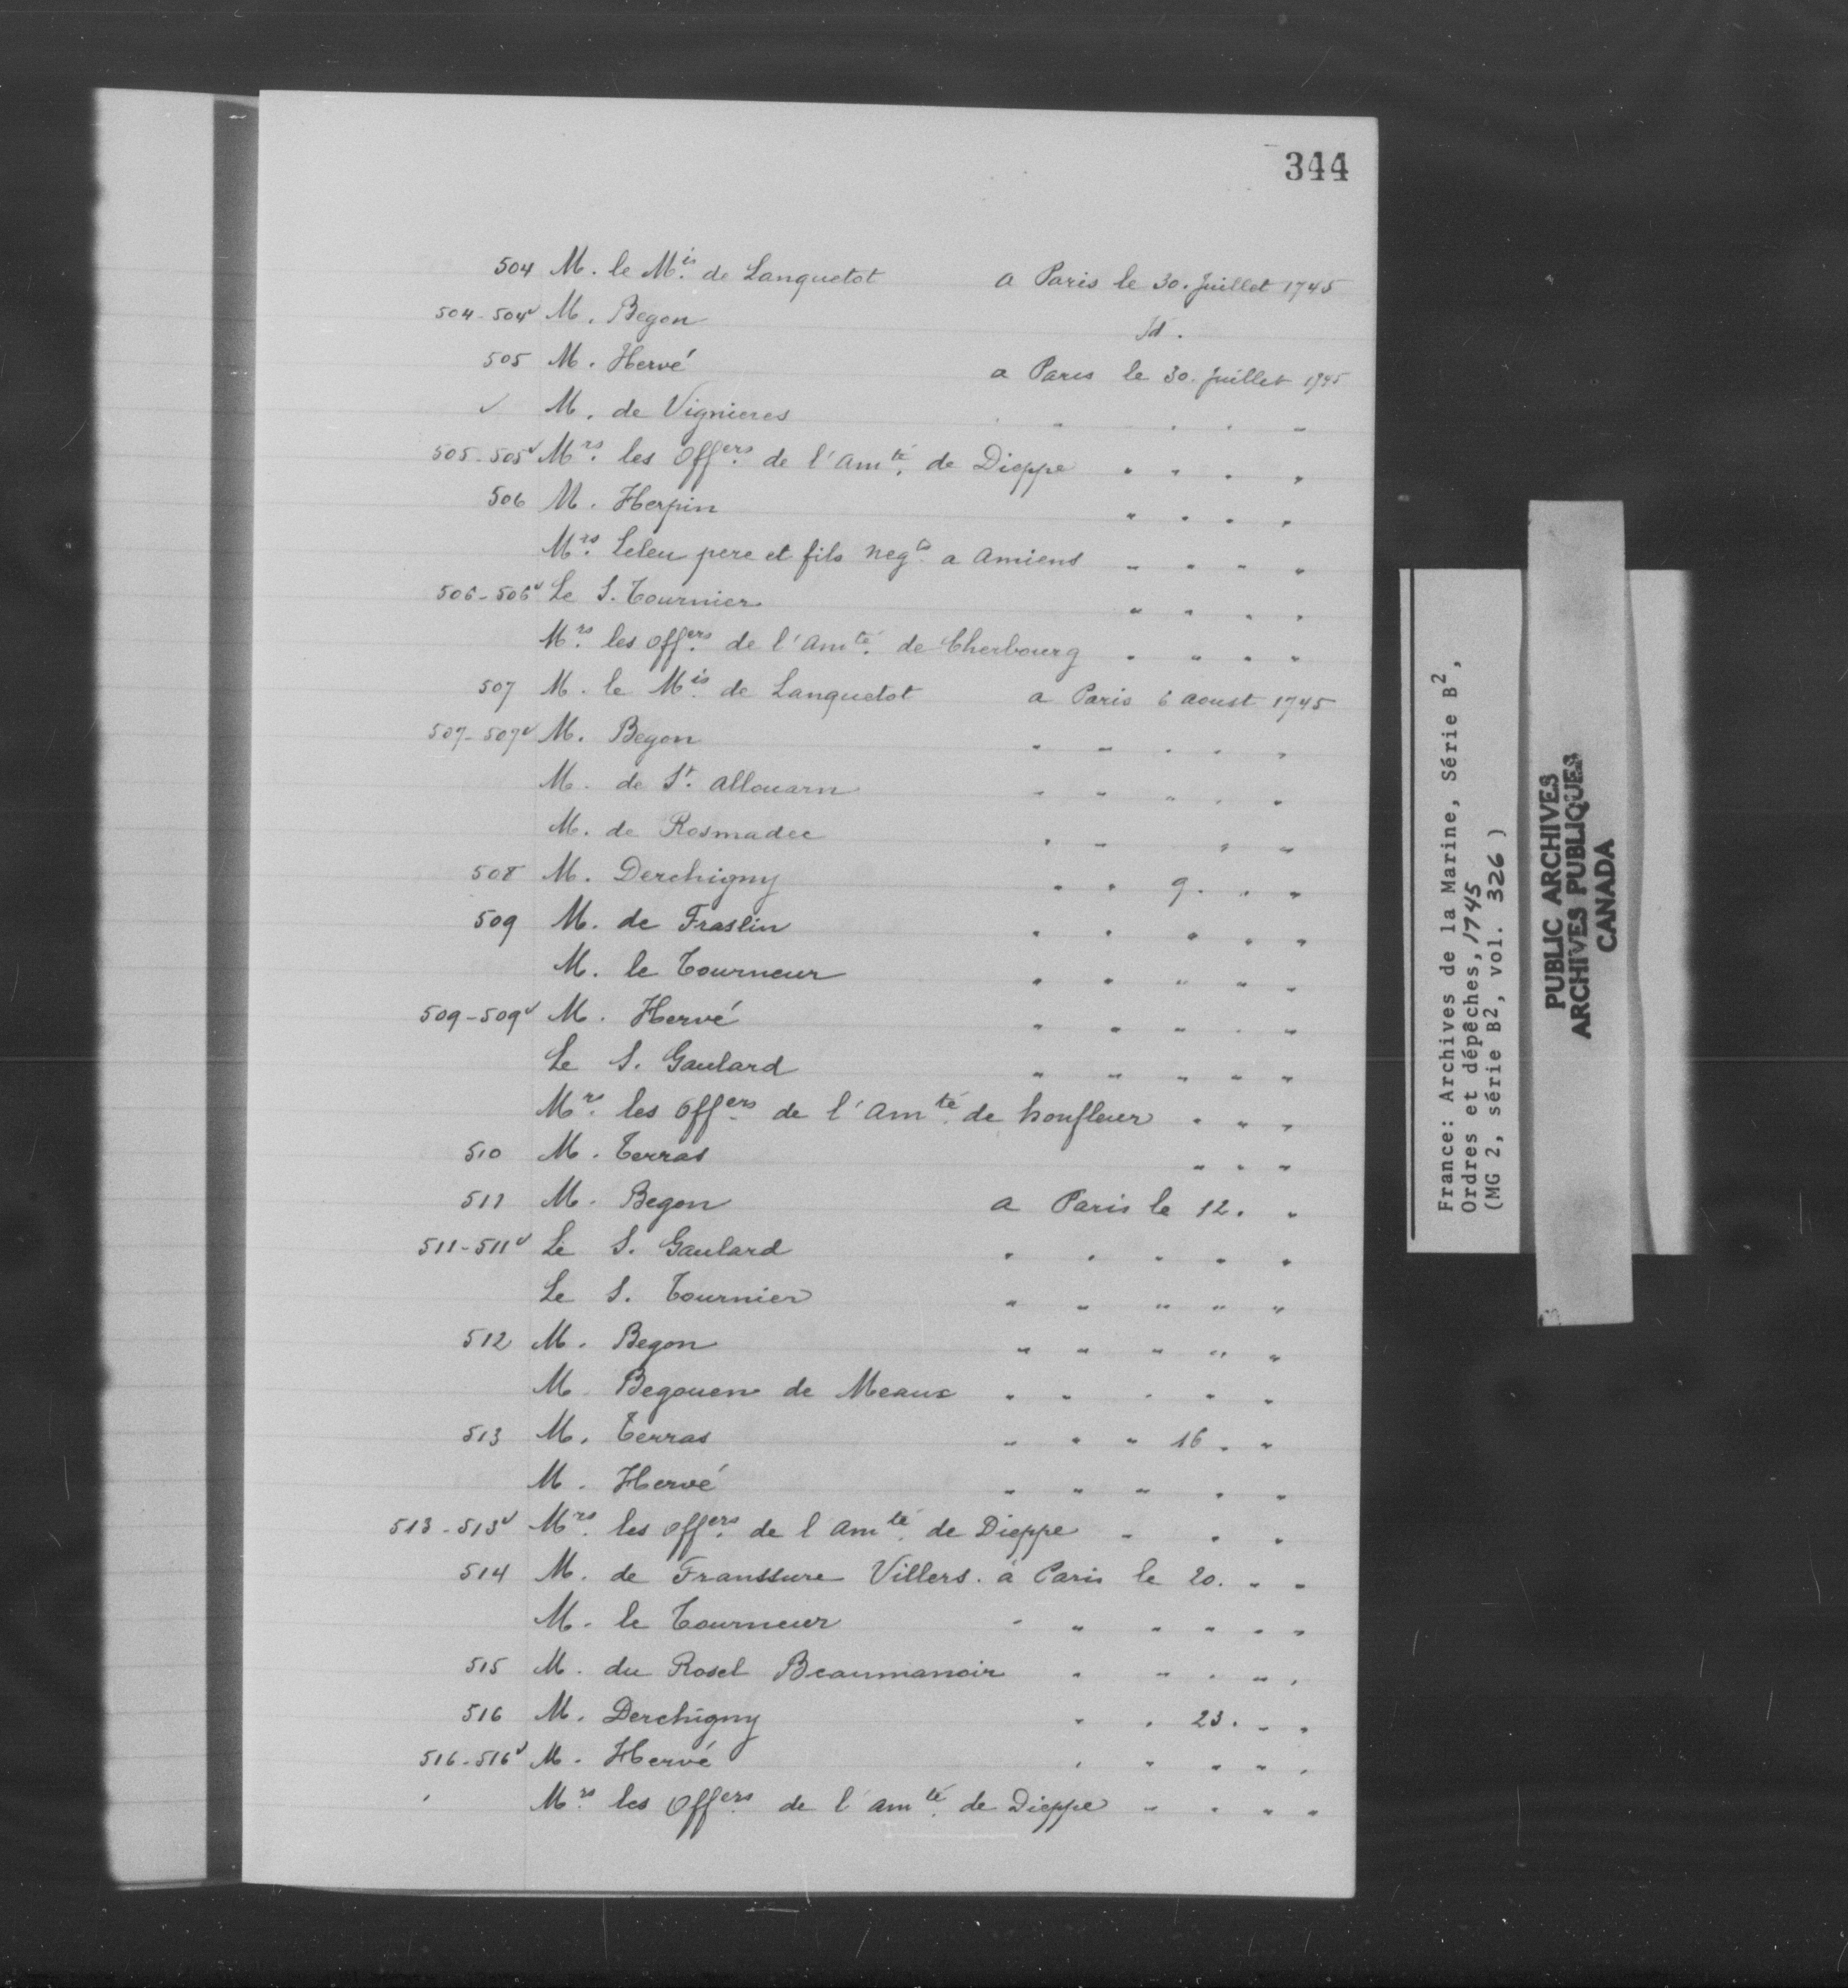 344
504 M. le Mis. de Languetot a Paris le 30. Juillet 1745
504-504v M. Begon Id.
505 M. Hervé a Paris le 30. Juillet 1745
v M. de Vignieres " " " "
505-505v Mrs. les Offers. de l'amté. de Dieppe " " " "
506 M. Herpin " " " "
Mrs. Leleu pere et fils negts a Amiens " " " "
506-506v Le S. Tournier " " " "
Mrs. les offers. de l'amté. de Cherbourg " " " "
507 M. le Mis. de Languetot a Paris 6 aoust 1745
507-507v M. Begon " " " " "
M. de St. allouarn " " " " "
M. de Rosmadec " " " "
508 M. Derchigny " " 9. " "
509 M. de Fraslin " " " " "
M. le Tourneur " " " " "
509-509v M. Hervé " " " " "
Le S. Gaulard " " " " "
Mrs. les Offers. de l'amté. de honfleur " " "
510 M. Terras " " "
511 M. Begon a Paris le 12. "
511-511v Le S. Gaulard " " " " "
Le S. Tournier " " " " "
512 M. Begon " " " " "
M. Begouen de Meaux " " " " "
513 M. Terras " " " 16. "
M. Hervé " " " " "
513-513v Mrs. les offers. de l amté. de Dieppe " " "
514 M. de Franssure Villers. à Paris le 20. " "
M. le Tourneur " " " " " "
515 M. du Rosel Beaumanoir " " " " "
516 M. Derchigny " " 23. " "
516-516v M. Hervé " " " " "
Mrs. les Offers. de l'amté. de Dieppe " " " "
France: Archives de la Marine, Série B2,
Ordres et dépêches, 1745
(MG 2, série B2, vol. 326)
PUBLIC ARCHIVES
ARCHIVES PUBLIQUES
CANADA